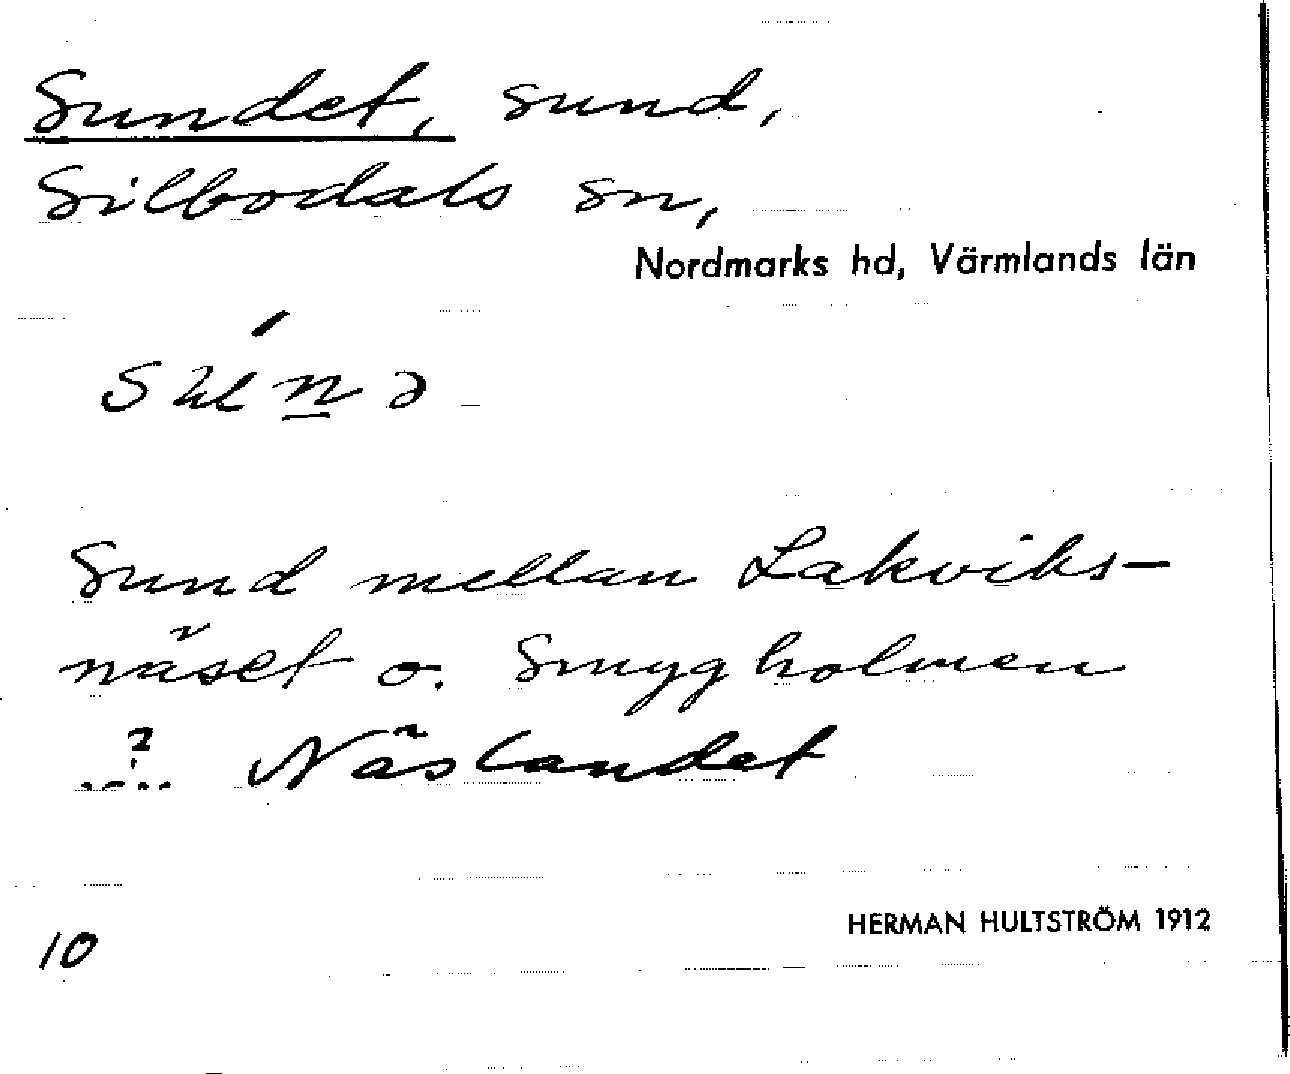 Sundet, sund,
Silbodals sn,
Nordmarks hd, Värmlands län
Sund mellan Lakviks-
näset o. Smygholmen
? Näslandet
HERMAN HULTSTRÖM 1912
10